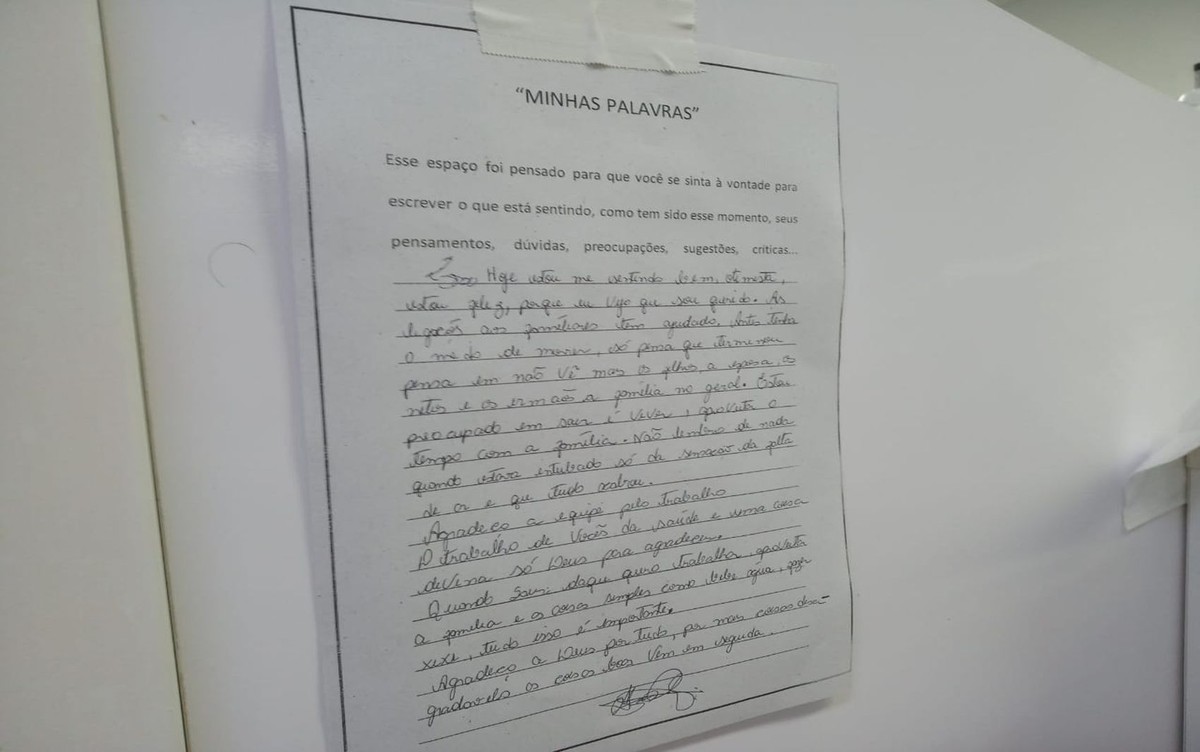 “MINHAS PALAVRAS”
Esse espaço foi pensado para que você se sinta à vontade para
escrever o que está sentindo, como tem sido esse momento, seus
pensamentos, dúvidas, preocupações, sugestões, críticas...
Hoje estou me sentindo bem, otimista,
estou feliz, porque eu vejo que sou querido. As
ligações aos familiares tem ajudado, Antes tinha
o medo de morrer, só pensa que terminou
pensa em não vê mas os filhos, a esposa, os
netos e os irmãos a família no geral. Estou
preocupado em sair é viver, aproveita o
tempo com a família. Não lembro de nada
quando estava intubado só da sensação da falta
de ar e que tudo acabou.
Agradeço a equipe pelo trabalho
O trabalho de vocês da saúde e uma coisa
devina só Deus para agradecer.
Quando sair daqui quero trabalha, aproveita
a família e as coisas simples como beber agua, fazer
xixi, tudo isso é importante.
Agradeço a Deus por tudo, por mas coisas desa-
gradaveis as coisas boas vem em seguida.